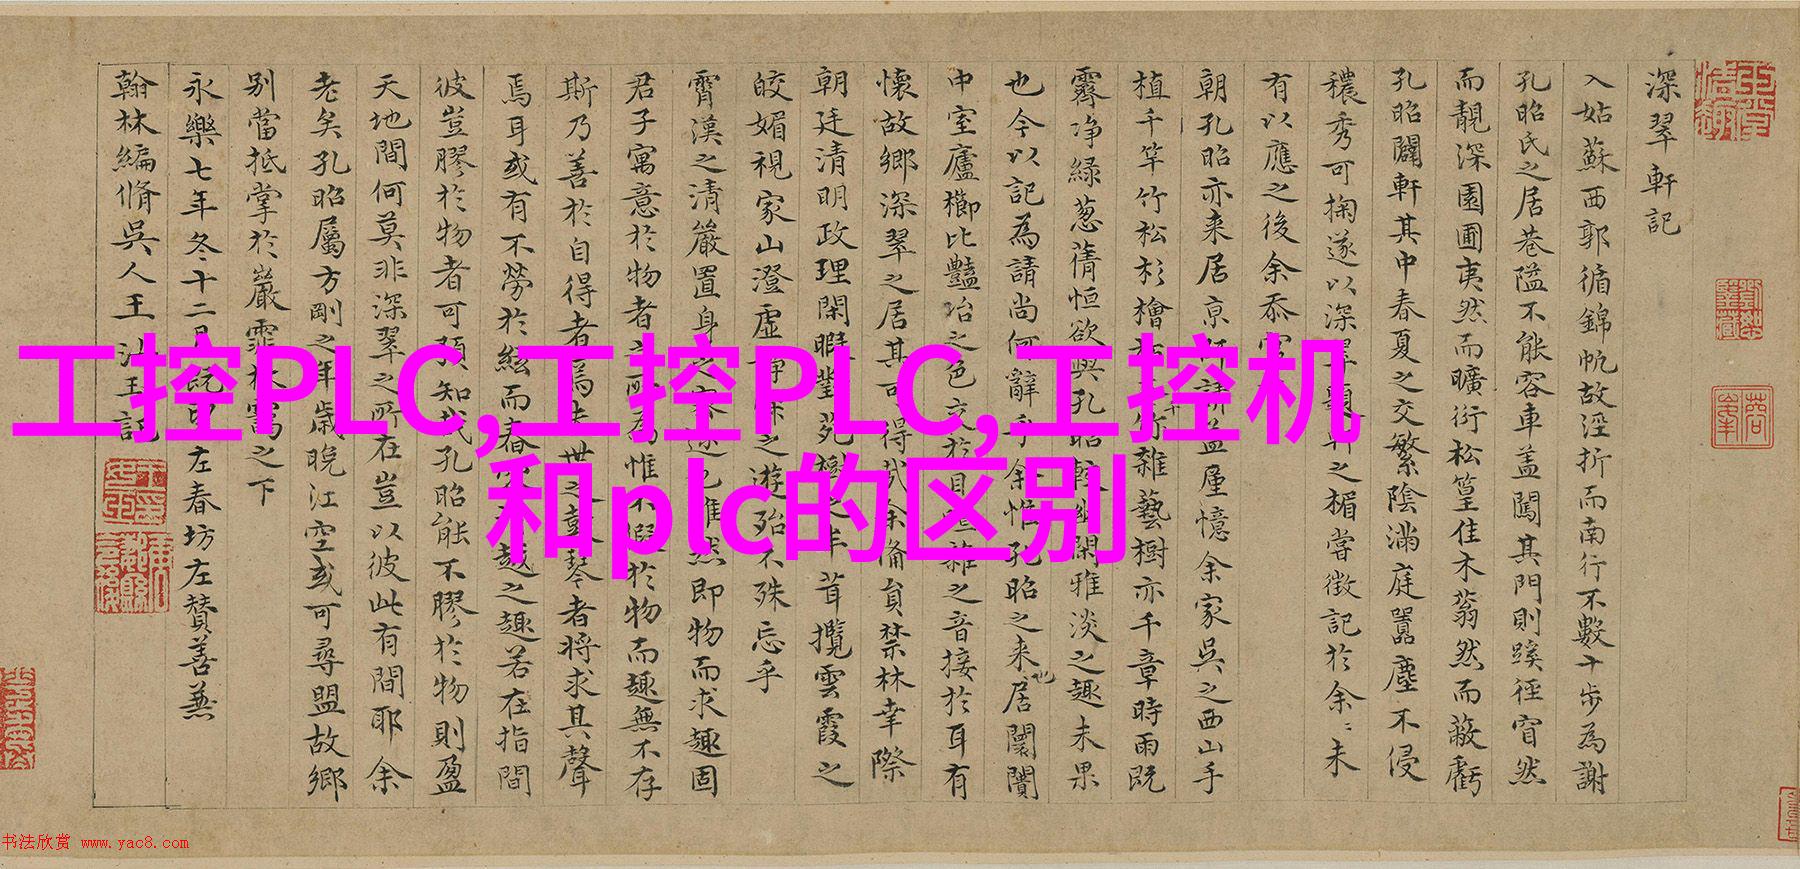 深翠軒記
入姑蘇西郭循錦帆故涇折而南行不數十步為謝
孔昭氏之居巷隘不能容車蓋闖其門則蹊徑窅然
而靚深園圃夷然而曠衍松篁佳木蓊然而蔽虧
孔昭闢軒其中春夏之交繁陰滿庭嚚塵不侵
穠秀可掬遂以深翠題軒之楣嘗徵記於余〻未
有以應之後余忝官
朝孔昭亦来居京師講益廑憶余家吳之西山手
植千竿竹松杉檜 竹雜藝樹亦千章時雨既
霽净緑葱蒨恒欲與孔昭 幽閑雅淡之趣未果
也今以記為請尚何辭乎余惟孔昭之来居闤闠
中室廬櫛比豔冶之色交於目喧雜之音接於耳有
懷故鄉深翠之居其可得哉余備員禁林幸際
朝廷清明政理閑暇 茸攬雲霞之
皎媚視家山澄虛 之遊殆不殊忘乎
霄漢之清嚴置身之 雖然即物而求趣固
君子寓意於物者 惟不假於物而趣無不存
斯乃善於自得者焉 世之鼓琴者將求其聲
焉耳或有不勞於絃而春 趣之趣若在指間
彼豈膠於物者可預知哉孔昭能不膠於物則盈
天地間何莫非深翠之所在豈以彼此有間耶余
老矣孔昭屬方剛之年歲晚江空或可尋盟故鄉
別當抵掌於巖霏林 之下
永樂七年冬十二月既 左春坊左贊善兼
翰林編脩吳人王汝玉記
工控PLC,工控PLC,工控机
和plc的区别
书法欣赏 www.yac8.com